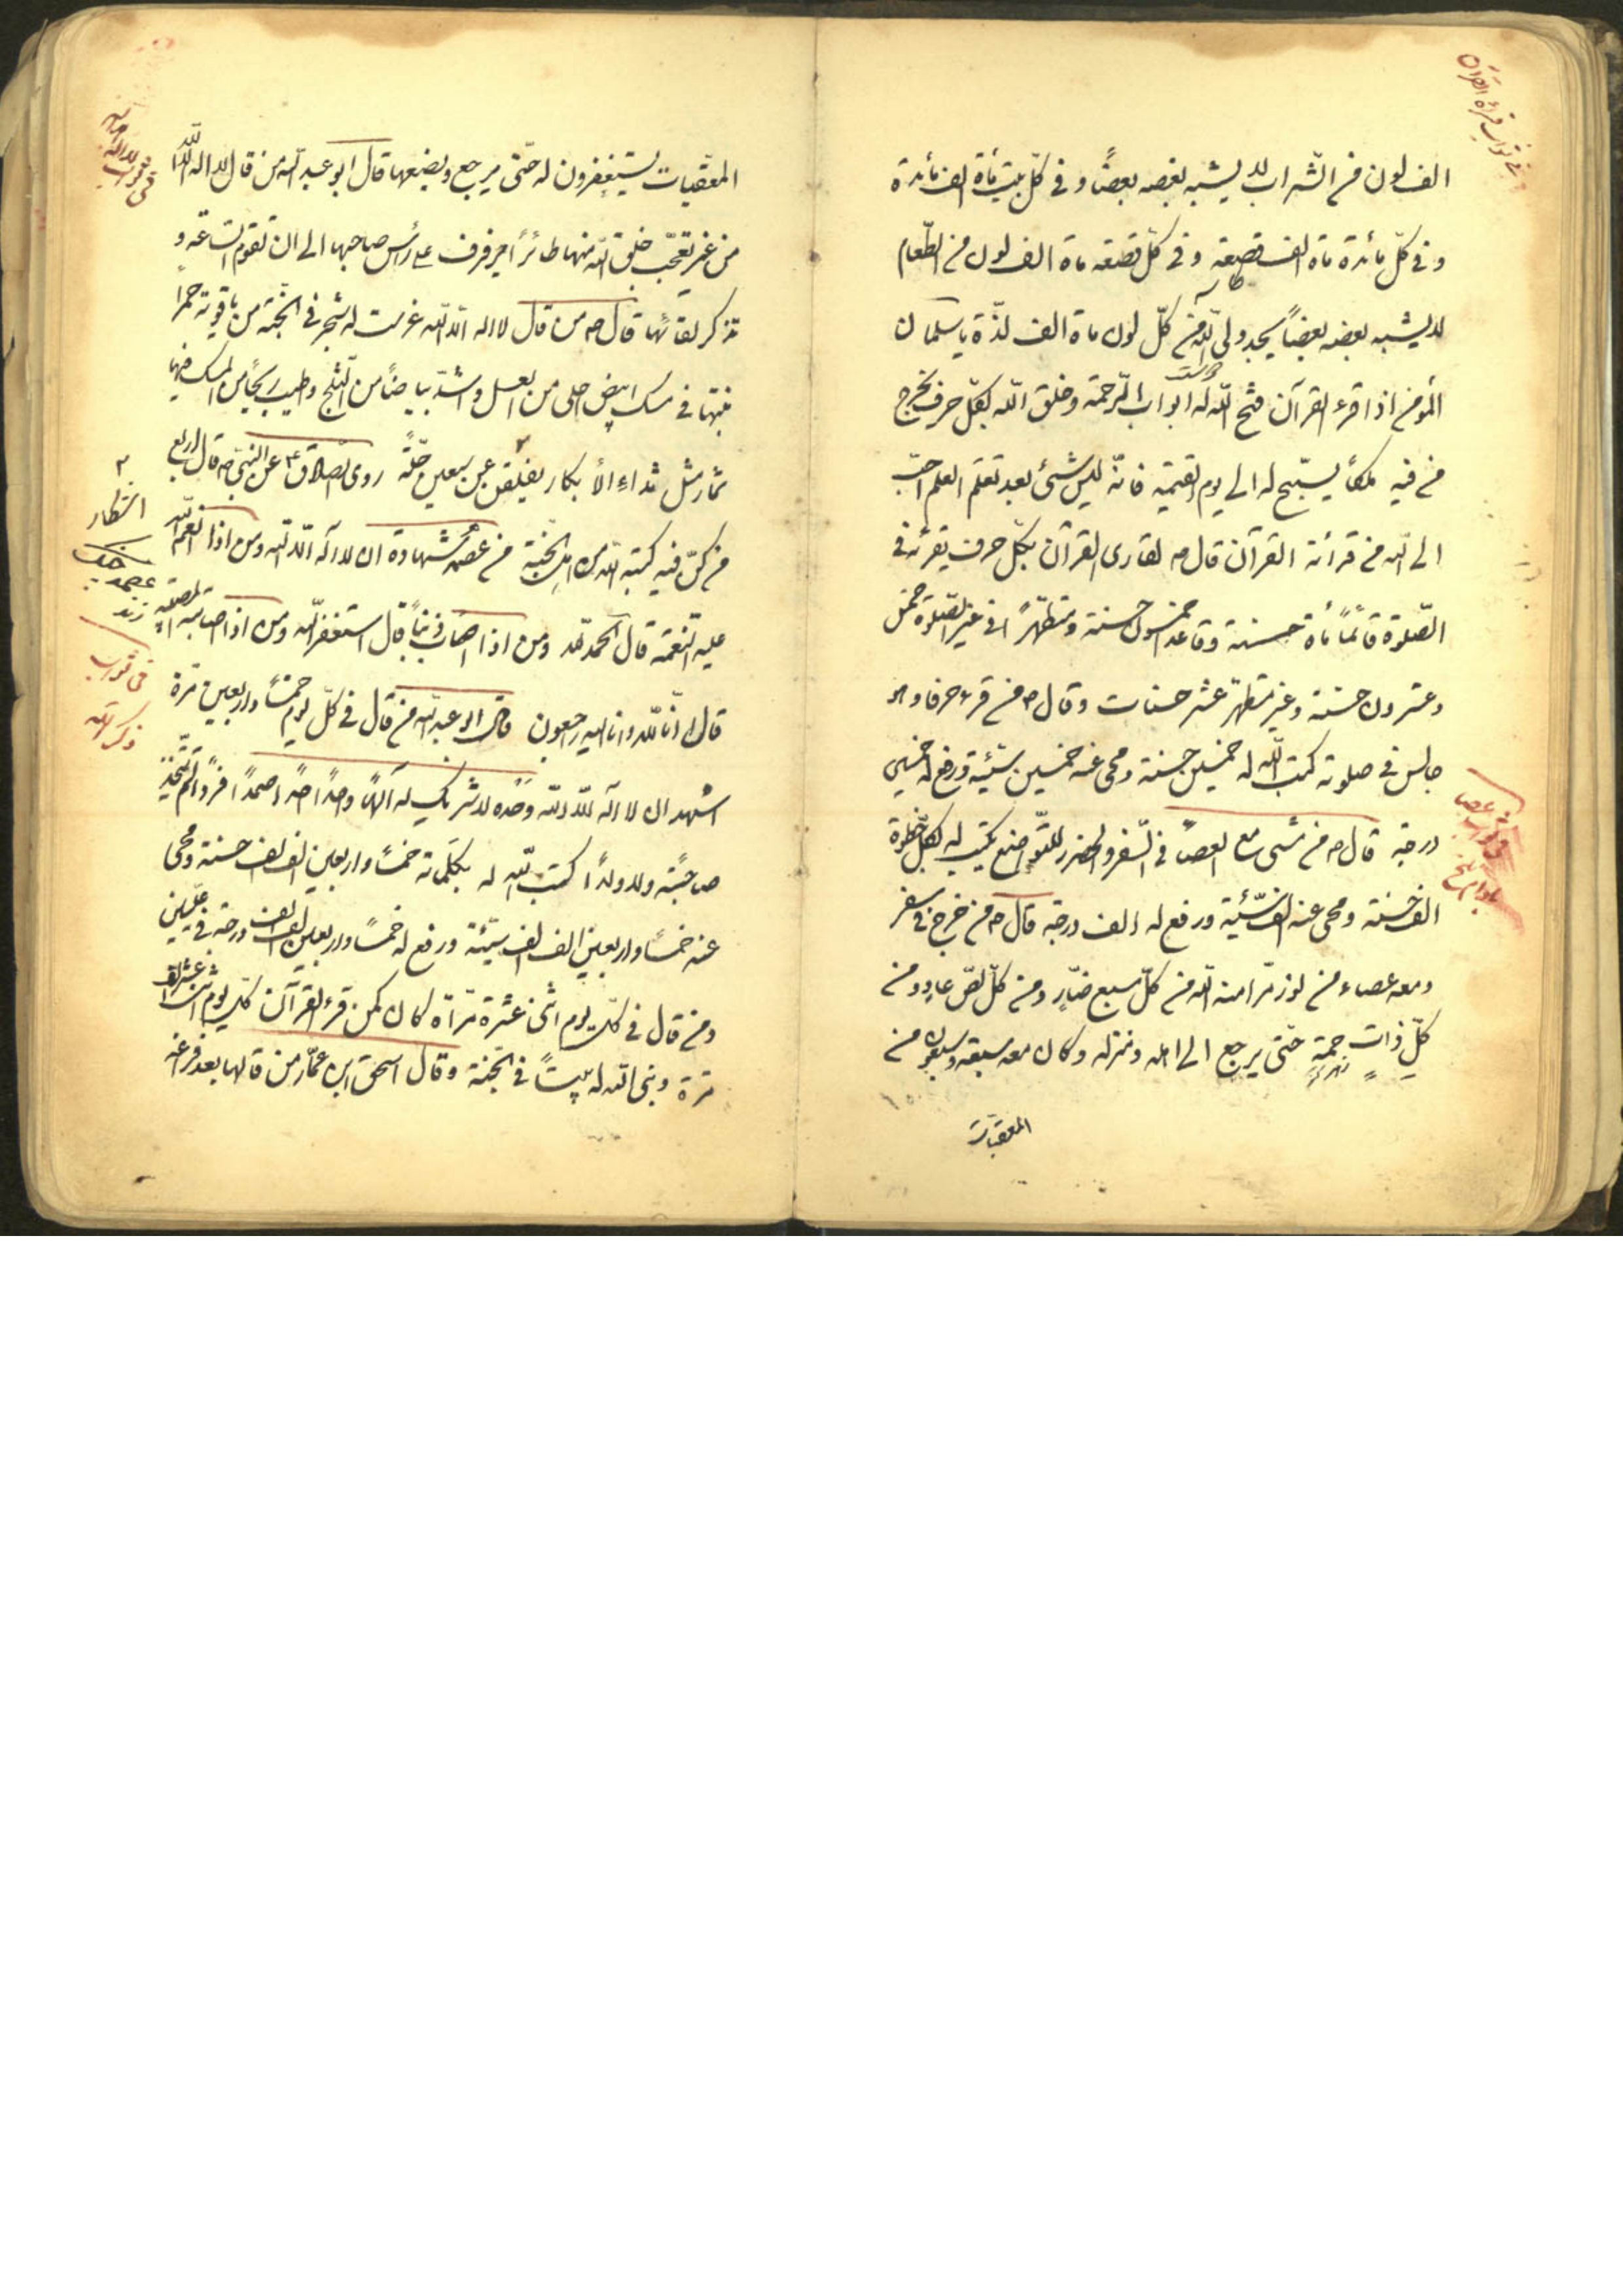 في ثواب قرائة القرآن
الف لون من الشراب لا يشبه بعضه بعضًا و في كلّ بيت مأة الف مائدة
و في كلّ مائدة ماة الف قصعة و في كلّ قصعة ماة الف لون من الطّعام
لا يشبه بعضه بعضاً يجد وليّ اللّه من كلّ لون ماة الف لذّة يا سلمان
المؤمن اذا قرء القرآن فتح اللّه له ابواب الرّحمة و خلق اللّه بكلّ حرف يخرج
من فيه ملكاً يسبّح له الى يوم القيمة فانّه ليس شئ بعد تعلّم العلم احبّ
الى اللّه من قرأئة القرآن قال ص لقارى القرآن بكلّ حرف يقرئه في
الصّلوة قائمًا مأة حسنة و قاعدا خمسون حسنة و متطهّرًا في غير الصّلوة خمس
و عشرون حسنة و غير متطهّر عشر حسنات و قال ص من قرء حرفا و هو
جالس في صلوته كتب اللّه له خمسين حسنة و محى عنه خمسين سيّئة و رفع له خمسين
درجة قال ص من مشى مع العصا في السّفر و الحضر للتّواضع يكتب له لكلّ خطوة
الف حسنة و محى عنه الف سيّئة و رفع له الف درجة قال ص من خرج في سفر
و معه عصاء من لوز مرّ امنه اللّه من كلّ سبع ضارٍ و من كلّ لصّ عادٍ و من
كلّ ذاتِ حمةٍ حتّى يرجع الى اهله و منزله و كان معه سبعة و سبعون من
المعقبات
المعقّبات يستغفرون له حتّى يرجع و يضعها قال ابو عبد اللّه من قال لا اله الّا اللّه
من غير تعجّب خلق اللّه منها طائرًا يرفرف على رأس صاحبها الى ان تقوم السّاعة و
تذكر لقائلها قال ص من قال لا اله الّا اللّه غرست له شجر في الجنّة من ياقوتة حمراً
منبتها في مسك ابيض احلى من العسل و اشدّ بياضًا من الثّلج و اطيب ريحًا من المسك فيها
ثمار مثل ثداءِ الأبكار يفلق عن سبعين حلّة روى الصّادق ع عن النبيّ ص قال اربع
من كنّ فيه كتبه اللّه من اهل الجنّة من عصمه شهادة ان لا اله الّا اللّه و من اذا انعم اللّه
عليه النّعمة قال الحمد للّه و من اذا اصاب ذنبًا قال استغفر اللّه و من اذا اصابته المصيبة
قال انّا للّه و انا اليه راجعون و قال ابو عبد اللّه من قال في كلّ يوم خمسًا و اربعين مرّة
اشهد ان لا اله الّا اللّه وحْده لا شريك له آلهًا واحدًا احدًا صمدًا فردًا لم يتّخذ
صاحبًة و لا ولدًا كتب اللّه له بكلماته خمسًا و اربعين الف الف حسنة و محى
عنه خمسًا و اربعين الف الف سيّئة و رفع له خمسًا و اربعين الف الف درجة في علّيين
و من قال في كلّ يوم اثنى عشرة مرّاة كان كمن قرء القرآن كلّ يوم اثنتى عشرة
مرّة و بنى اللّه له بيتًا في الجنّة و قال اسحق ابن عمّار من قالها بعد فراغه
في ثواب
ذكر اللّه